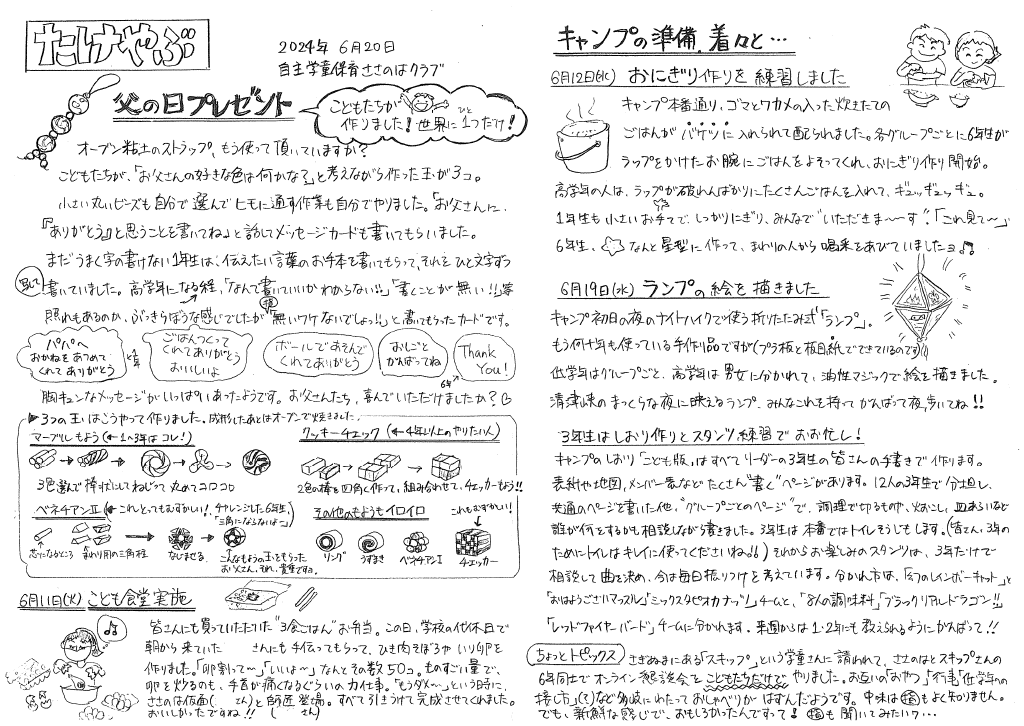 たけやぶ
2024年 6月20日
自主学童保育ささのはクラブ
父の日プレゼント
こどもたちが
作りました！世界に1つだけ！
ひと
オーブン粘土のストラップ、もう使って頂いていますか？
こどもたちが、「お父さんの好きな色は何かな？」と考えながら作った玉が3コ。
小さい丸いビーズも自分で選んでヒモに通す作業も自分でやりました。「お父さんに、
『ありがとう』と思うことを書いてね」と話してメッセージカードも書いてもらいました。
まだうまく字の書けない1年生は、伝えたい言葉のお手本を書いてもらって、それを ひと文字ずつ
写して
書いていました。高学年になる程、「なんて書いていいかわからない!!」「書くことが無い!!」等
照れもあるのか、ぶっきらぼうな感じでしたが「無いワケないでしょ!!」と書いてもらったカードです。
パパへ
おかねをあつめて
くれてありがとう
1年
ごはんつくって
くれてありがとう
おいしいよ
ボールであそんで
くれてありがとう
おしごと
がんばってね
Thank
You!
6年
胸キュンなメッセージがいっぱいありあったようです。お父さんたち、喜んでいただけましたか？
▶3つの玉はこうやって作りました。成形したあとはオーブンで焼きました。
マーブルもよう(←1〜3年はコレ！)
3色選んで棒状にしてねじって丸めてコロコロ
クッキーチェック (←4年以上のやりたい人)
2色の棒を四角く作って、組み合わせて、チェッカーもよう!!
ベネチアンII (←これとってもむずかしい！チャレンジした6年生、
「三角にならないよ〜」
芯になるところ まわり用の三角柱 なじませる
こんなもようの玉をもらった
お父さん、それ、貴重ですよ
その他のもようもイロイロ
これもむずかしい！
リング うずまき ベネチアンI チェッカー
6月11日(火) こども食堂実施
皆さんにも買っていただいた“3食ごはん”お弁当。この日、学校の代休日で
朝から来ていた さんにも手伝ってもらって、ひき肉そぼろやいり卵を
作りました。「卵割って〜」「いいよ〜」なんとその数50コ。ものすごい量で、
卵を炒るのも、手首が痛くなるぐらいの力仕事。「もうダメ〜」という時に、
ささのは仮面( さん)と師匠登場。すべて引きうけて完成させてくれました。
おいしかったですね!! ( さん)
キャンプの準備、着々と…
6月12日(水) おにぎり作りを練習しました
キャンプ本番通り、ゴマとワカメの入った炊きたての
ごはんがバケツに入れられて配られました。各グループごとに6年生が
ラップをかけたお腕にごはんをよそってくれ、おにぎり作り開始。
高学年の人は、ラップが破れんばかりにたくさんごはんを入れて、ギュッギュッギュ。
1年生も小さいお手々で、しっかりにぎり、みんなで“いただきま〜す”！「これ見て〜」
6年生、☆なんと星型に作って、まわりの人から喝采をあびていましたヨ♪
6月19日(水) ランプの絵を描きました
キャンプ初日の夜のナイトハイクで使う折りたたみ式「ランプ」。
もう何十年も使っている手作り品ですが(プラ板と板目紙でできているのです)
低学年はグループごと、高学年は男女に分かれて、油性マジックで絵を描きました。
清津峡のまっくらな夜に映えるランプ、みんなこれを持ってがんばって夜、歩いてね!!
3年生はしおり作りとスタンツ練習でお忙し！
キャンプのしおり「こども版」はすべてリーダーの3年生の皆さんの手書きで作ります。
表紙や地図、メンバー表などたくさん“書く”ページがあります。12人の3年生で分担し、
共通のページを書いた他、“グループごとのページ”で、調理で切るものや、火おこし、皿あらいなど
誰が何をするかも相談しながら書きました。3年生は本番ではトイレそうじもします。(皆さん、3年の
ためにトイレはキレイに使ってくださいね!!) それからお楽しみのスタンツは、3年だけで
相談して曲を決め、今は毎日振りつけを考えています。分かれ方は、「幻のレインボーキャット」と
「おはようございマッスル」「ミックスタピオカナッツ」チームと、「8人の調味料」「ブラックリアルドラゴン!!」
「レッドファイヤーバード」チームに分かれます。来週からは1・2年にも教えられるようにがんばって!!
ちょっとトピックス
さぎぬまにある「スキップ」という学童さんに請われて、ささのはとスキップさんの
6年同士でオンライン懇談会をこどもたちだけでやりました。お互いの「おやつ」「行事」「低学年への
接し方」(?)など多岐にわたっておしゃべりがはずんだようです。中味は もよく知りません。
でも、新鮮な感じで、おもしろかったんですって！ も聞いてみたいワ…